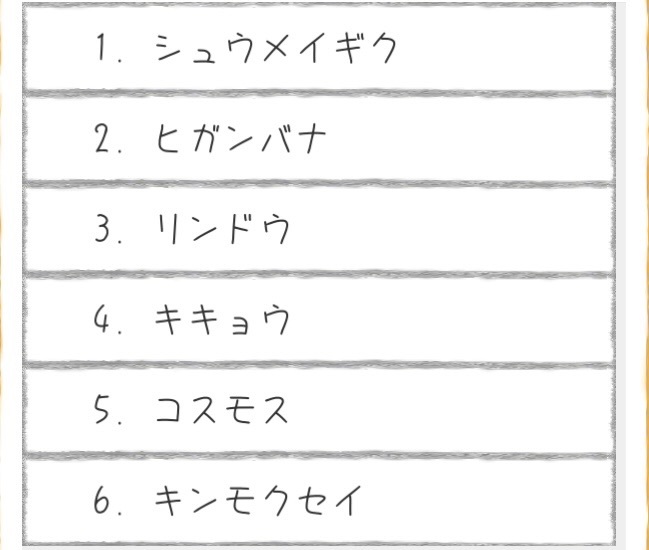 1. シュウメイギク
2. ヒガンバナ
3. リンドウ
4. キキョウ
5. コスモス
6. キンモクセイ